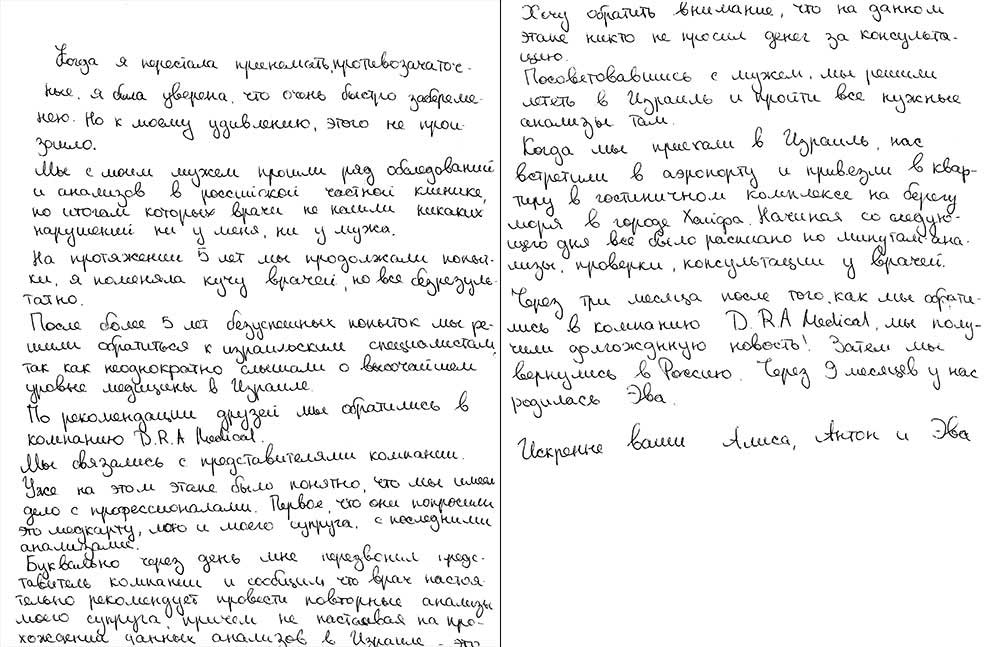 Когда я перестала принимать противозачаточ-
ные, я была уверена, что очень быстро забереме-
нею. Но к моему удивлению, этого не прои-
зошло.
Мы с моим мужем прошли ряд обследований
и анализов в российской частной клинике,
по итогам которых врачи не нашли никаких
нарушений ни у меня, ни у мужа.
На протяжении 5 лет мы продолжали попыт-
ки, я поменяла кучу врачей, но все безрезуль-
татно.
После более 5 лет безуспешных попыток мы ре-
шили обратиться к израильским специалистам,
так как неоднократно слышали о высочайшем
уровне медицины в Израиле.
По рекомендации друзей мы обратились в
компанию D.R.A Medical.
Мы связались с представителями компании.
Уже на этом этапе было понятно, что мы имеем
дело с профессионалами. Первое, что они попросили
это медкарту, мою и моего супруга, с последними
анализами.
Буквально через день мне перезвонил предс-
тавитель компании и сообщил, что врач настоя-
тельно рекомендует провести повторные анализы
моего супруга, причем не настаивая на про-
хождении данных анализов в Израиле - это
Хочу обратить внимание, что на данном
этапе никто не просил денег за консульта-
цию.
Посоветовавшись с мужем, мы решили
лететь в Израиль и пройти все нужные
анализы там.
Когда мы приехали в Израиль, нас
встретили в аэропорту и привезли в квар-
тиру в гостиничном комплексе на берегу
моря в городе Хайфа. Начиная со следую-
щего дня все было расписано по минутам: ана-
лизы, проверки, консультации у врачей.
Через три месяца после того, как мы обрати-
лись в компанию D.R.A Medical, мы полу-
чили долгожданную новость! Затем мы
вернулись в Россию. Через 9 месяцев у нас
родилась Эва.
Искренне ваши Алиса, Антон и Эва